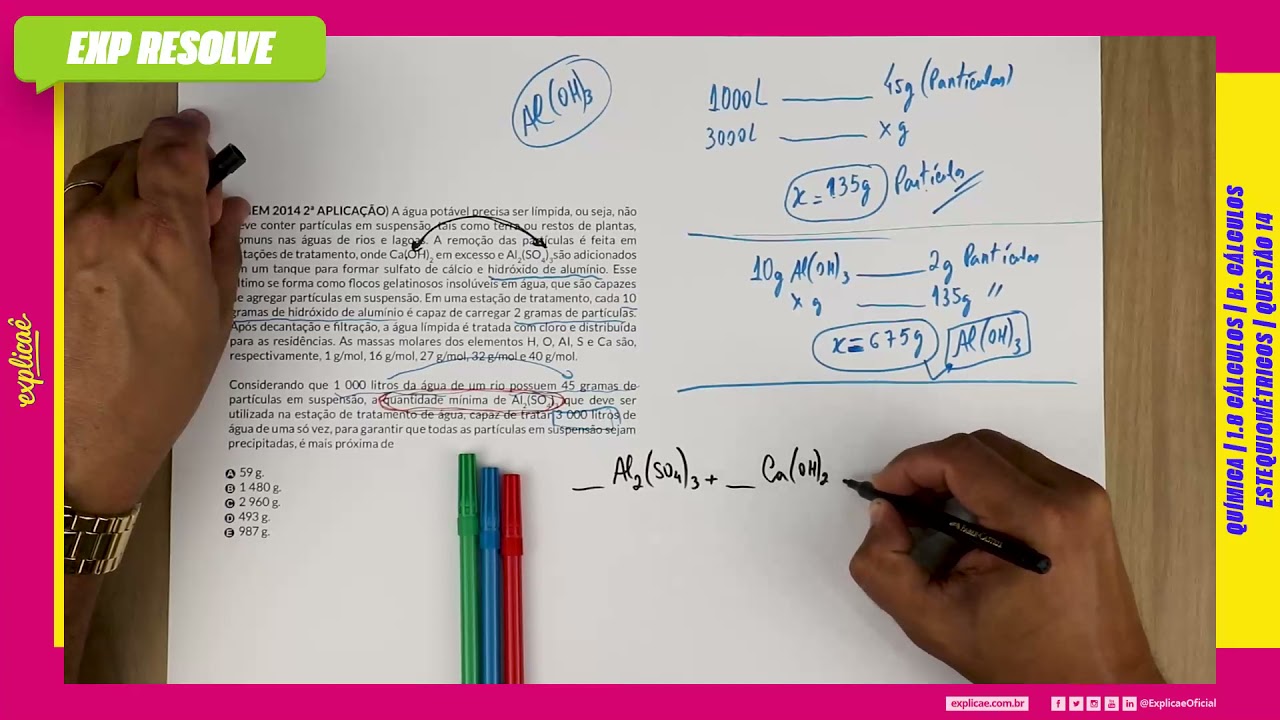 EXP RESOLVE
Al(OH)3
1000L 45g (Partículas)
3000L x g
x = 135g Partículas
10g Al(OH)3 2g Partículas
x g 135g "
x = 675g Al(OH)3
EM 2014 2ª APLICAÇÃO) A água potável precisa ser límpida, ou seja, não
eve conter partículas em suspensão, tais como terra ou restos de plantas,
omuns nas águas de rios e lagoas. A remoção das partículas é feita em
tações de tratamento, onde Ca(OH)2 em excesso e Al2(SO4)3 são adicionados
m um tanque para formar sulfato de cálcio e hidróxido de alumínio. Esse
ltimo se forma como flocos gelatinosos insolúveis em água, que são capazes
e agregar partículas em suspensão. Em uma estação de tratamento, cada 10
gramas de hidróxido de alumínio é capaz de carregar 2 gramas de partículas.
Após decantação e filtração, a água límpida é tratada com cloro e distribuída
para as residências. As massas molares dos elementos H, O, Al, S e Ca são,
respectivamente, 1 g/mol, 16 g/mol, 27 g/mol, 32 g/mol e 40 g/mol.
Considerando que 1 000 litros da água de um rio possuem 45 gramas de
partículas em suspensão, a quantidade mínima de Al2(SO4)3 que deve ser
utilizada na estação de tratamento de água, capaz de tratar 3 000 litros de
água de uma só vez, para garantir que todas as partículas em suspensão sejam
precipitadas, é mais próxima de
A 59 g.
B 1 480 g.
C 2 960 g.
D 493 g.
E 987 g.
__ Al2(SO4)3 + __ Ca(OH)2
explicaê
QUÍMICA | 1.8 CÁLCULOS | B. CÁLCULOS
ESTEQUIOMÉTRICOS | QUESTÃO 14
explicae.com.br
@ExplicaeOficial